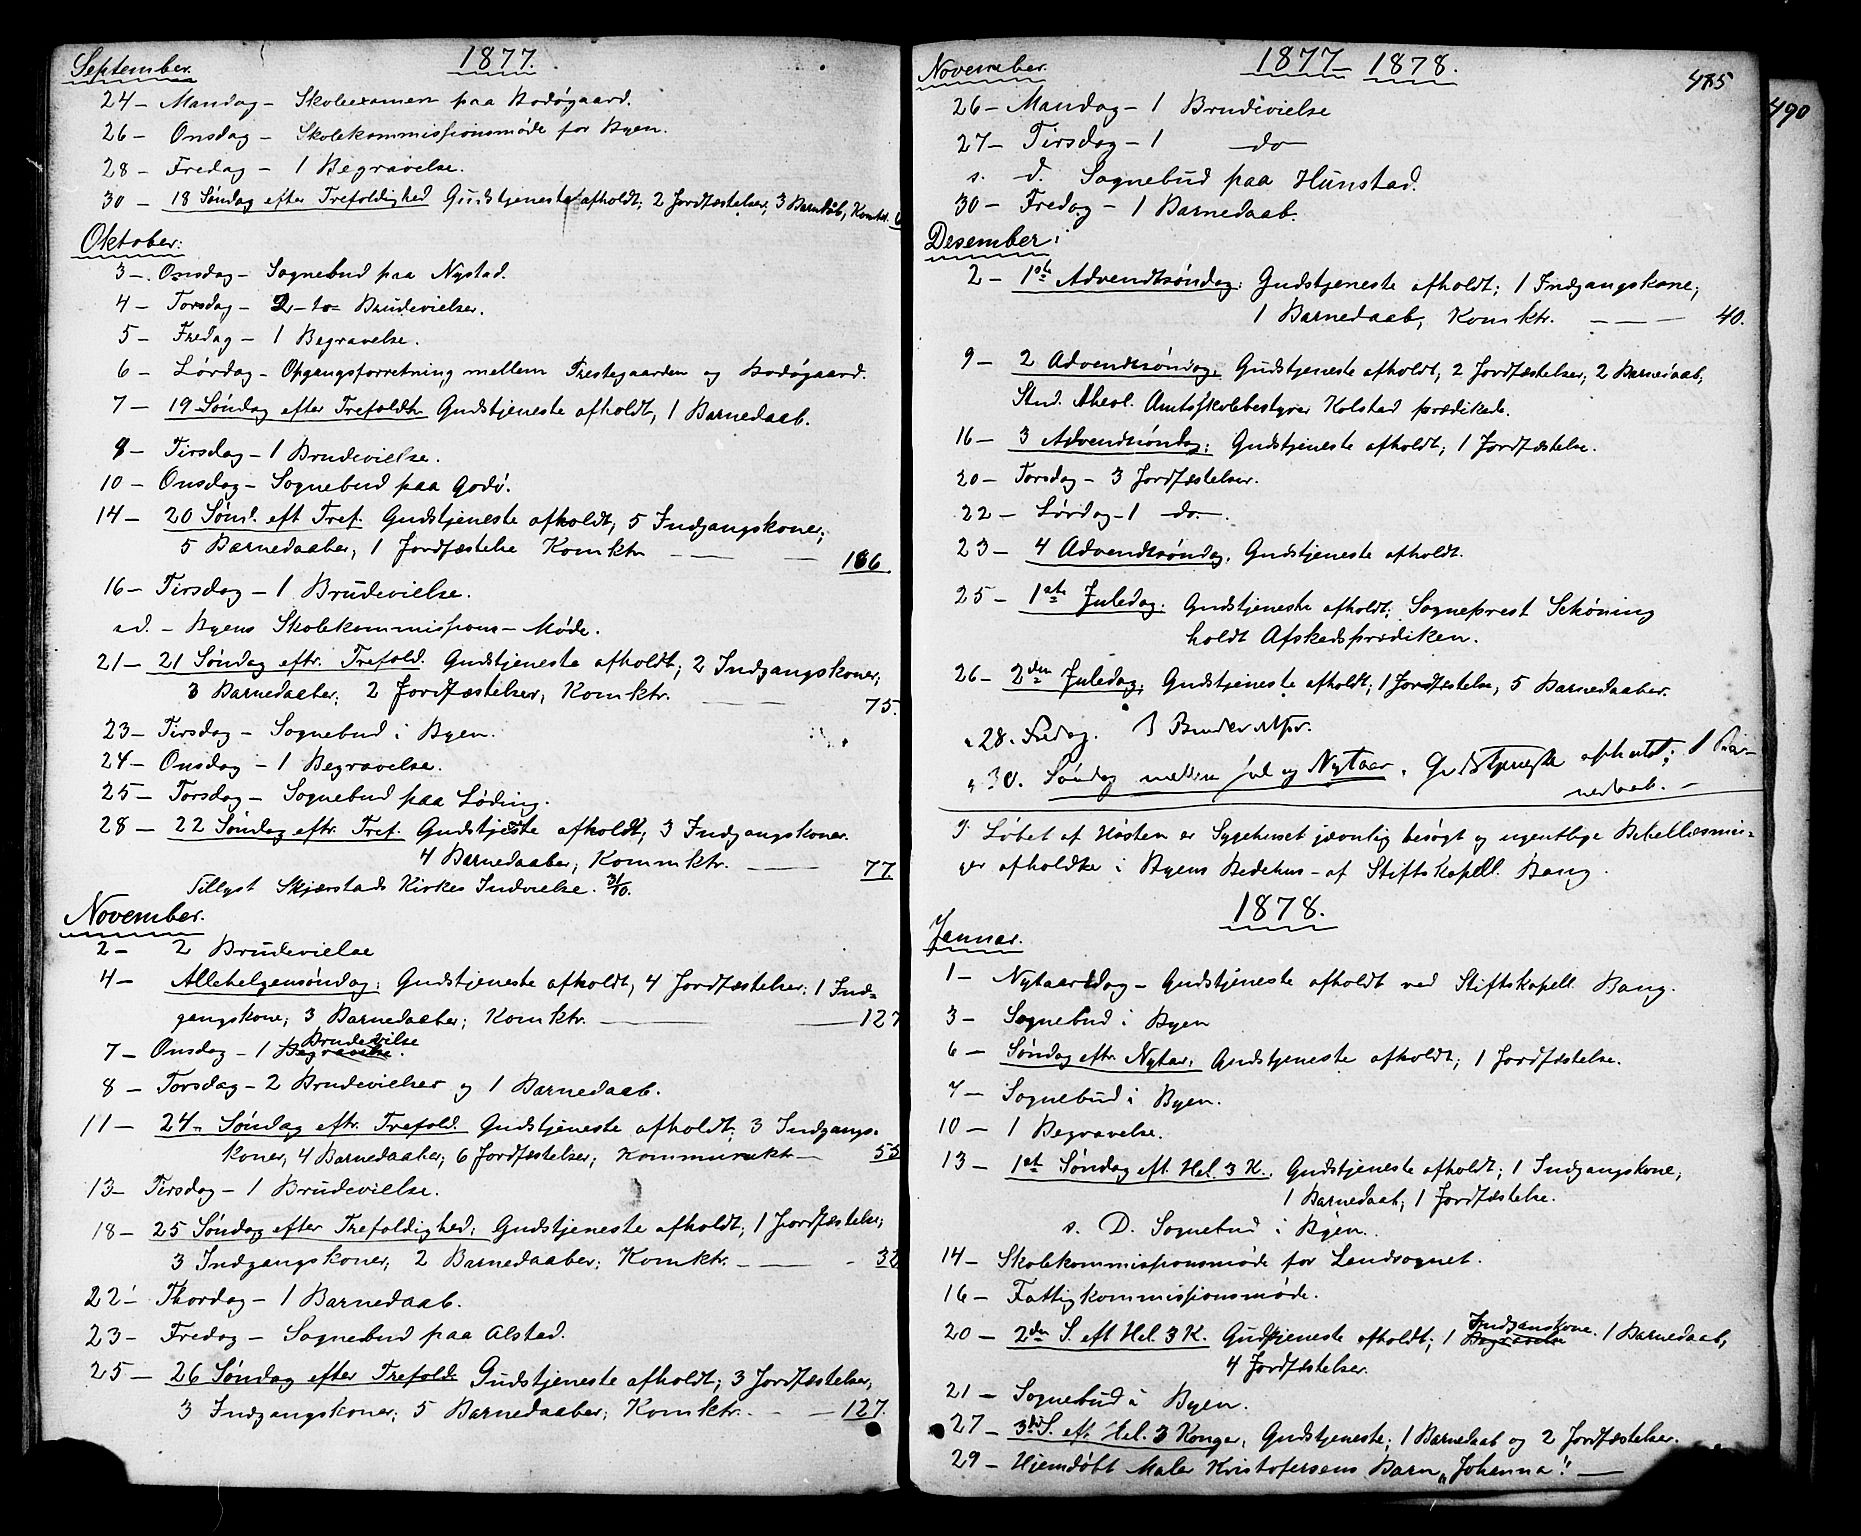 September. 1877.
24 – Mandag – Skoleexamen paa Bodøgaard.
26 – Onsdag – Skolekommissionsmøde for Byen.
28 – Fredag – 1 Begravelse.
30 – 18 Søndag efter Trefoldighed Gudstjeneste afholdt; 2 Jordfæstelser, 3 Barnedaab, Komktr.
Oktober:
3 – Onsdag – Sognebud paa Nystad.
4 – Torsdag – 2 – to Brudevielser.
5 – Fredag – 1 Begravelse.
6 – Lørdag – Opgangsforretning mellem Prestegaarden og Bodøgaard.
7 – 19 Søndag efter Trefoldh. Gudstjeneste afholdt, 1 Barnedaab.
9 – Tirsdag – 1 Brudevielse.
10 – Onsdag – Sognebud paa Godø.
14 – 20 Sønd. eft Tref. Gudstjeneste afholdt; 5 Indgangskoner;
5 Barnedaaber, 1 Jordfæstelse Komktr – – 166.
16 – Tirsdag – 1 Brudevielse.
s.d. – Byens Skolekommissions – Møde.
21 – 21 Søndag eftr. Trefold. Gudstjeneste afholdt; 2 Indgangskoner,
3 Barnedaaber; 2 Jordfæstelser; Komktr. – – 75.
23 – Tirsdag – Sognebud i Byen.
24 – Onsdag – 1 Begravelse.
25 – Torsdag – Sognebud paa Løding.
28 – 22 Søndag eftr. Tref. Gudstjeneste afholdt; 3 Indgangskoner.
4 Barnedaaber; Kommktr. – 77
Tillyst Skjærstads Kirkes Indvielse. 31/10.
November.
2 – 2 Brudevielse
4 – Allehelgensøndag; Gudstjeneste afholdt, 4 Jordfæstelser; 1 Ind-
gangskone; 3 Barnedaaber; Komktr. – – 127
Brudevilse
7 – Onsdag – 1 Begravelse.
8 – Torsdag – 2 Brudevielser og 1 Barnedaab.
11 – 24 – Søndag eftr. Trefold. Gudstjeneste afholdt; 3 Indgangs-
koner, 4 Barnedaaber; 6 Jordfæstelser; Kommunikt – 55
13 – Tirsdag – 1 Brudevielse.
18 – 25 Søndag efter Trefoldighed; Gudstjeneste afholdt; 1 Jordfæstelse;
3 Indgangskoner; 2 Barnedaaber; Komktr. – – 32
22 – Thordag – 1 Barnedaab.
23 – Fredag – Sognebud paa Alstad.
25 – 26 Søndag efter Trefoldh Gudstjeneste afholdt; 3 Jordfæstelser,
3 Indgangskoner; 5 Barnedaaber; Komktr. – – 127.
November. 1877 – 1878. 485
490
26 – Mandag – 1 Brudevielse
27 – Tirsdag – 1 do
s. d. Sognebud paa Hunstad.
30 – Fredag – 1 Barnedaab.
Desember:
2 – 1ste Advendtsøndag; Gudstjeneste afholdt; 1 Indgangskone;
1 Barnedaab, Komktr. – – – 40.
9 – 2 Advendtsøndag, Gudstjeneste afholdt; 2 Jordfæstelser, 2 Barnedaab,
Stud. theol. Amtsskolebestyrer Kolstad prædikede.
16 – 3 Advendtsøndag; Gudstjeneste afholdt; 1 Jordfæstelse.
20 – Torsdag – 3 Jordfæstelser.
22 – Lørdag – 1 do.
23 – 4 Advendtsøndag, Gudstjeneste afholdt.
25 – 1ste Juledag; Gudstjeneste afholdt; Sogneprest Schøning
holdt Afskedsprædiken.
26 – 2den Juledag; Gudstjeneste afholdt; 1 Jordfæstelse, 5 Barnedaaber.
" 28. Fredag.
" 30. Søndag mellem Jul og Nytaar, Gudstjeneste afholdt; 1 Bar-
nedaab. –
I Løbet af Høsten er Sygehuset jævnlig besøgt og ugentlige Bibellæsnin-
ger afholdte i Byens Bedehus – af Stiftskapell. Bang.
1878.
Januar.
1 – Nytaarsdag – Gudstjeneste afholdt ved Stiftskapell. Bang.
3 – Sognebud i Byen
6 – Søndag eftr. Nytar; Gudstjeneste afholdt; 1 Jordfæstelse.
7 – Sognebud i Byen.
10 – 1 Begravelse.
13 – 1st Søndag eft. Hel. 3 K. Gudstjeneste afholdt; 1 Indgangskone;
1 Barnedaab, 1 Jordfæstelse.
s. D. Sognebud i Byen.
14 – Skolekommissionsmøde for Landsognet.
16 – Fattigkommissionsmøde.
Indganskone.
20 – 2den S. eft Hel. 3 K. Gudstjeneste afholdt; 1 Begravelse 1 Barnedaab,
4 Jordfæstelser.
21 – Sognebud i Byen.
27 – 3die S. ef. Hel. 3 Konger, Gudstjeneste; 1 Barnedaab og 2 Jordfæstelser.
29 – Hjemdøbt Maler Kristofersens Barn „Johanna". –